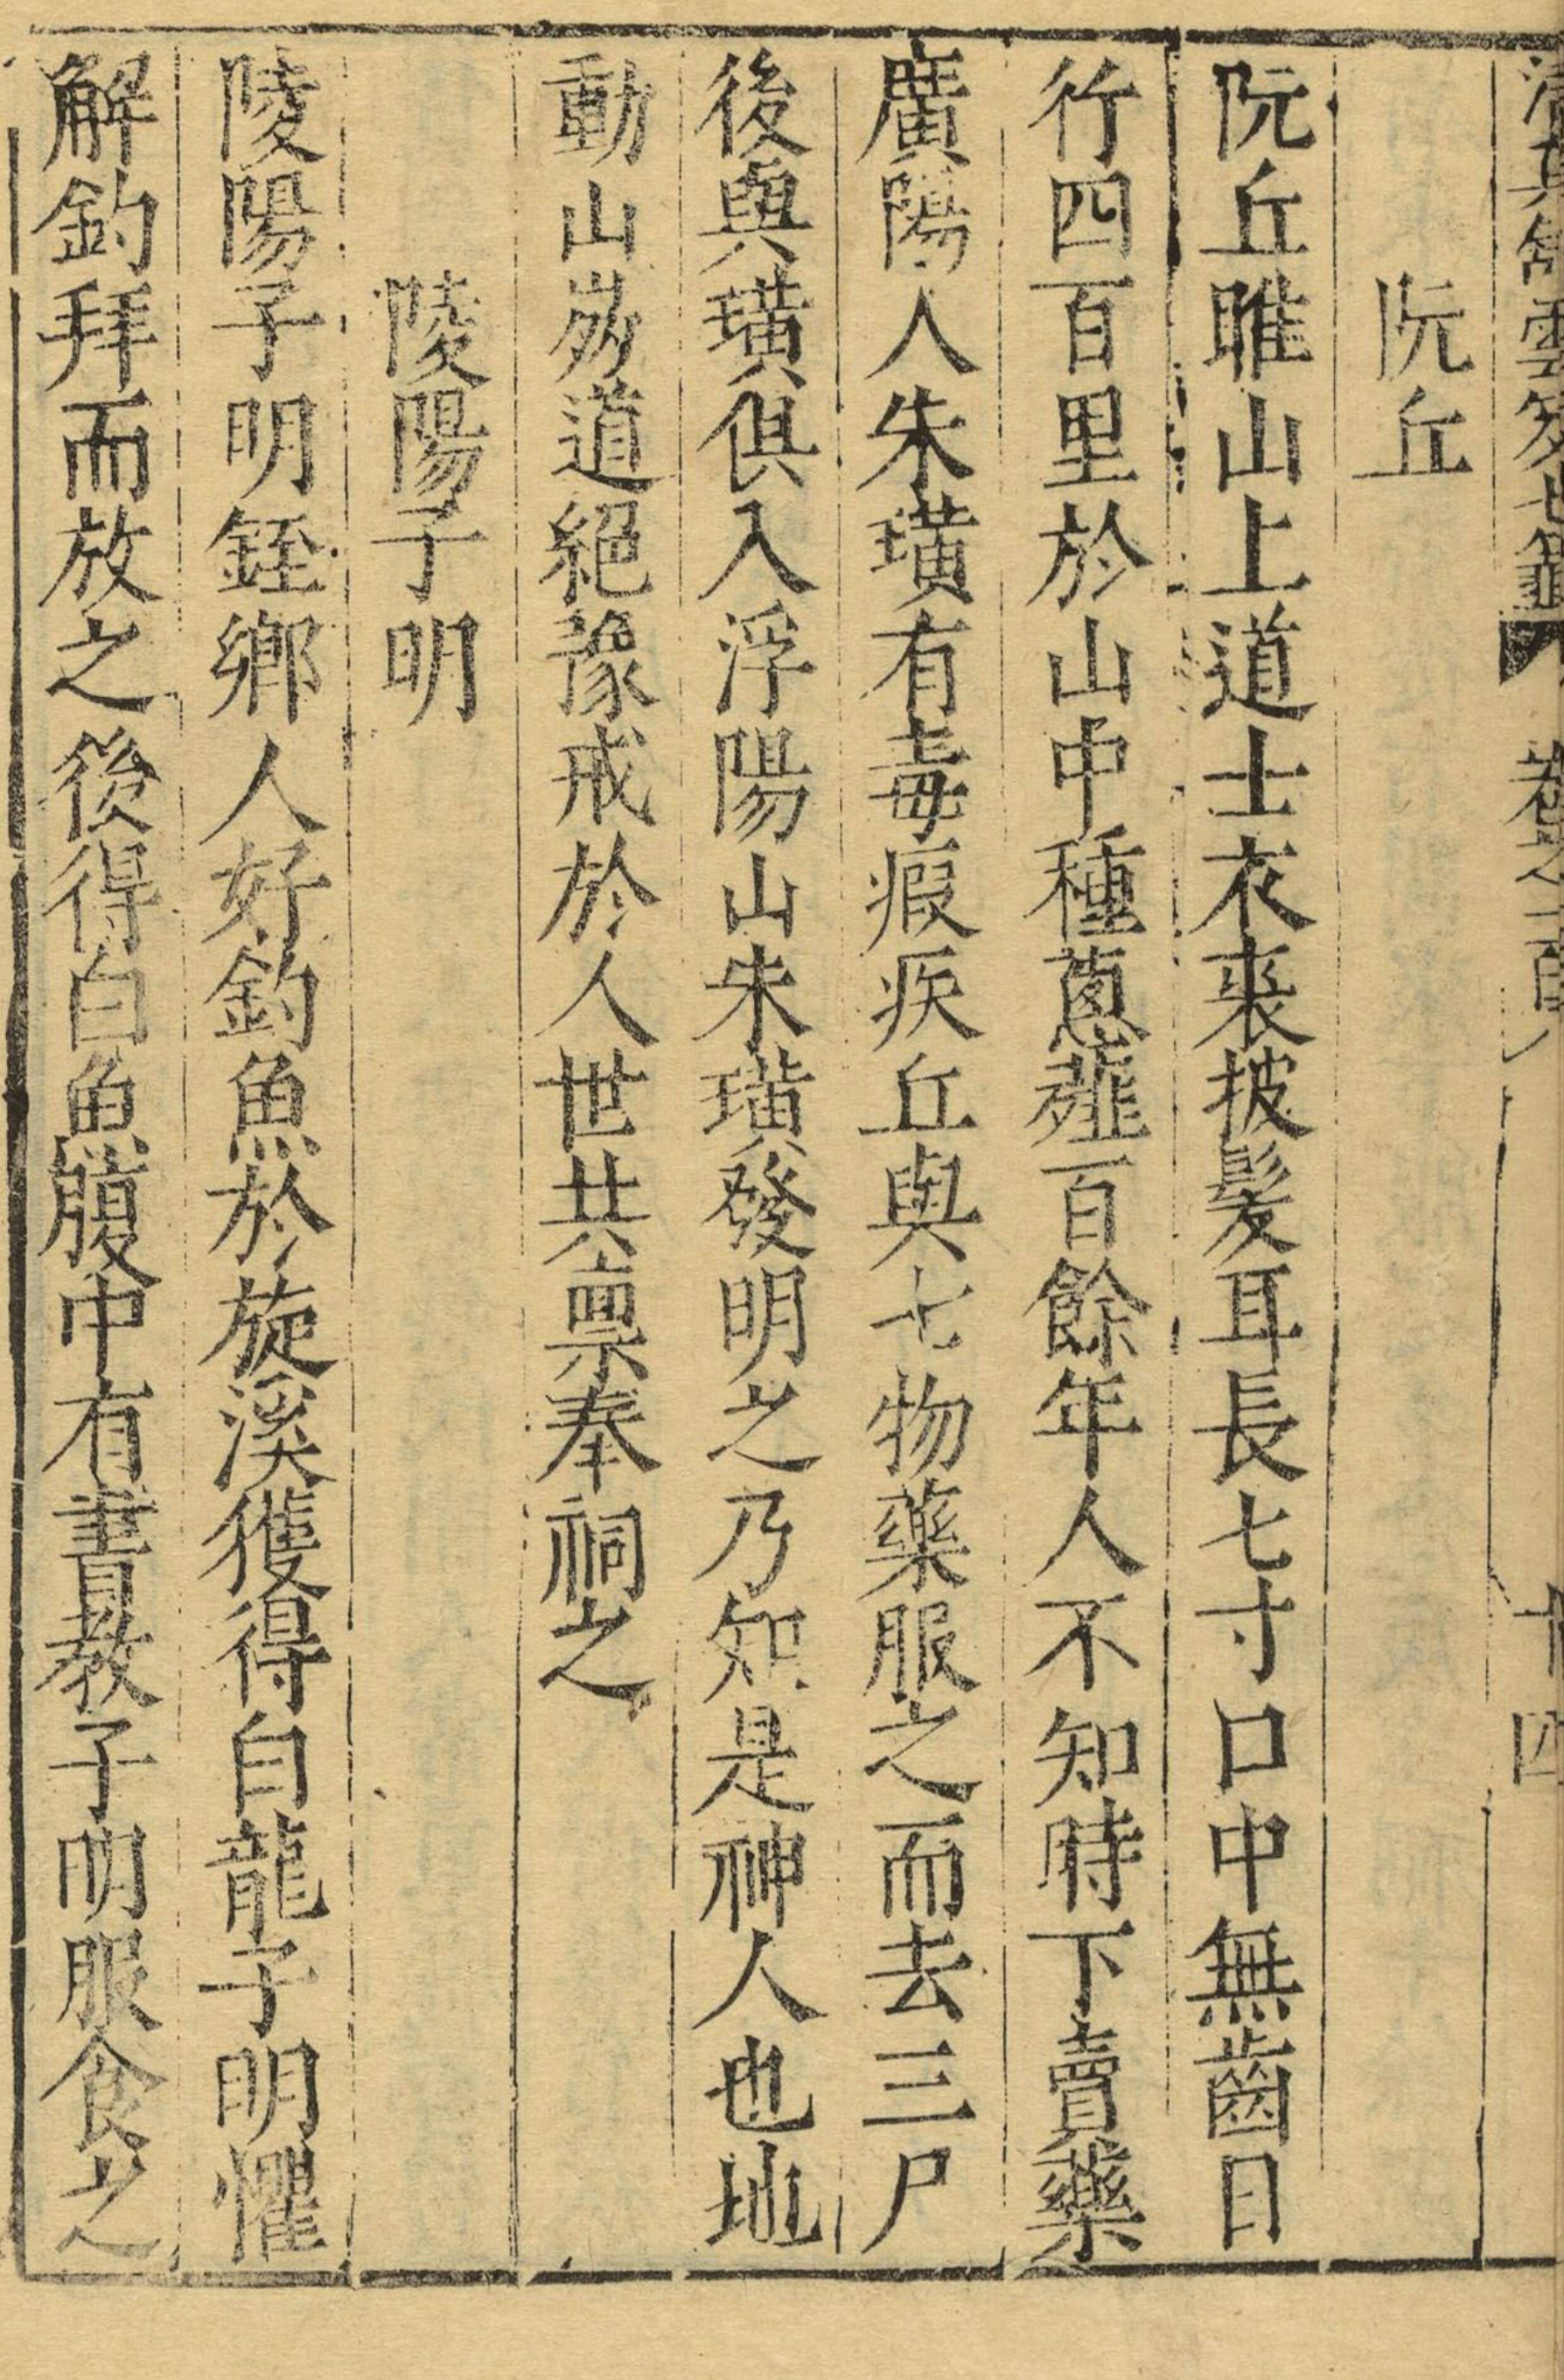 阮丘
阮丘睢山上道士衣裘披髮耳長七寸口中無齒日
行四百里於山中種蔥薤百餘年人不知時下賣藥
廣陽人朱璜有毒瘕疾丘與七物藥服之而去三尸
後與璜俱入浮陽山朱璜發明之乃知是神人也地
動山崩道絕豫戒於人世共稟奉祠之
陵陽子明
陵陽子明銍鄉人好釣魚於旋溪獲得白龍子明懼
解釣拜而放之後得白魚腹中有書教子明服食之